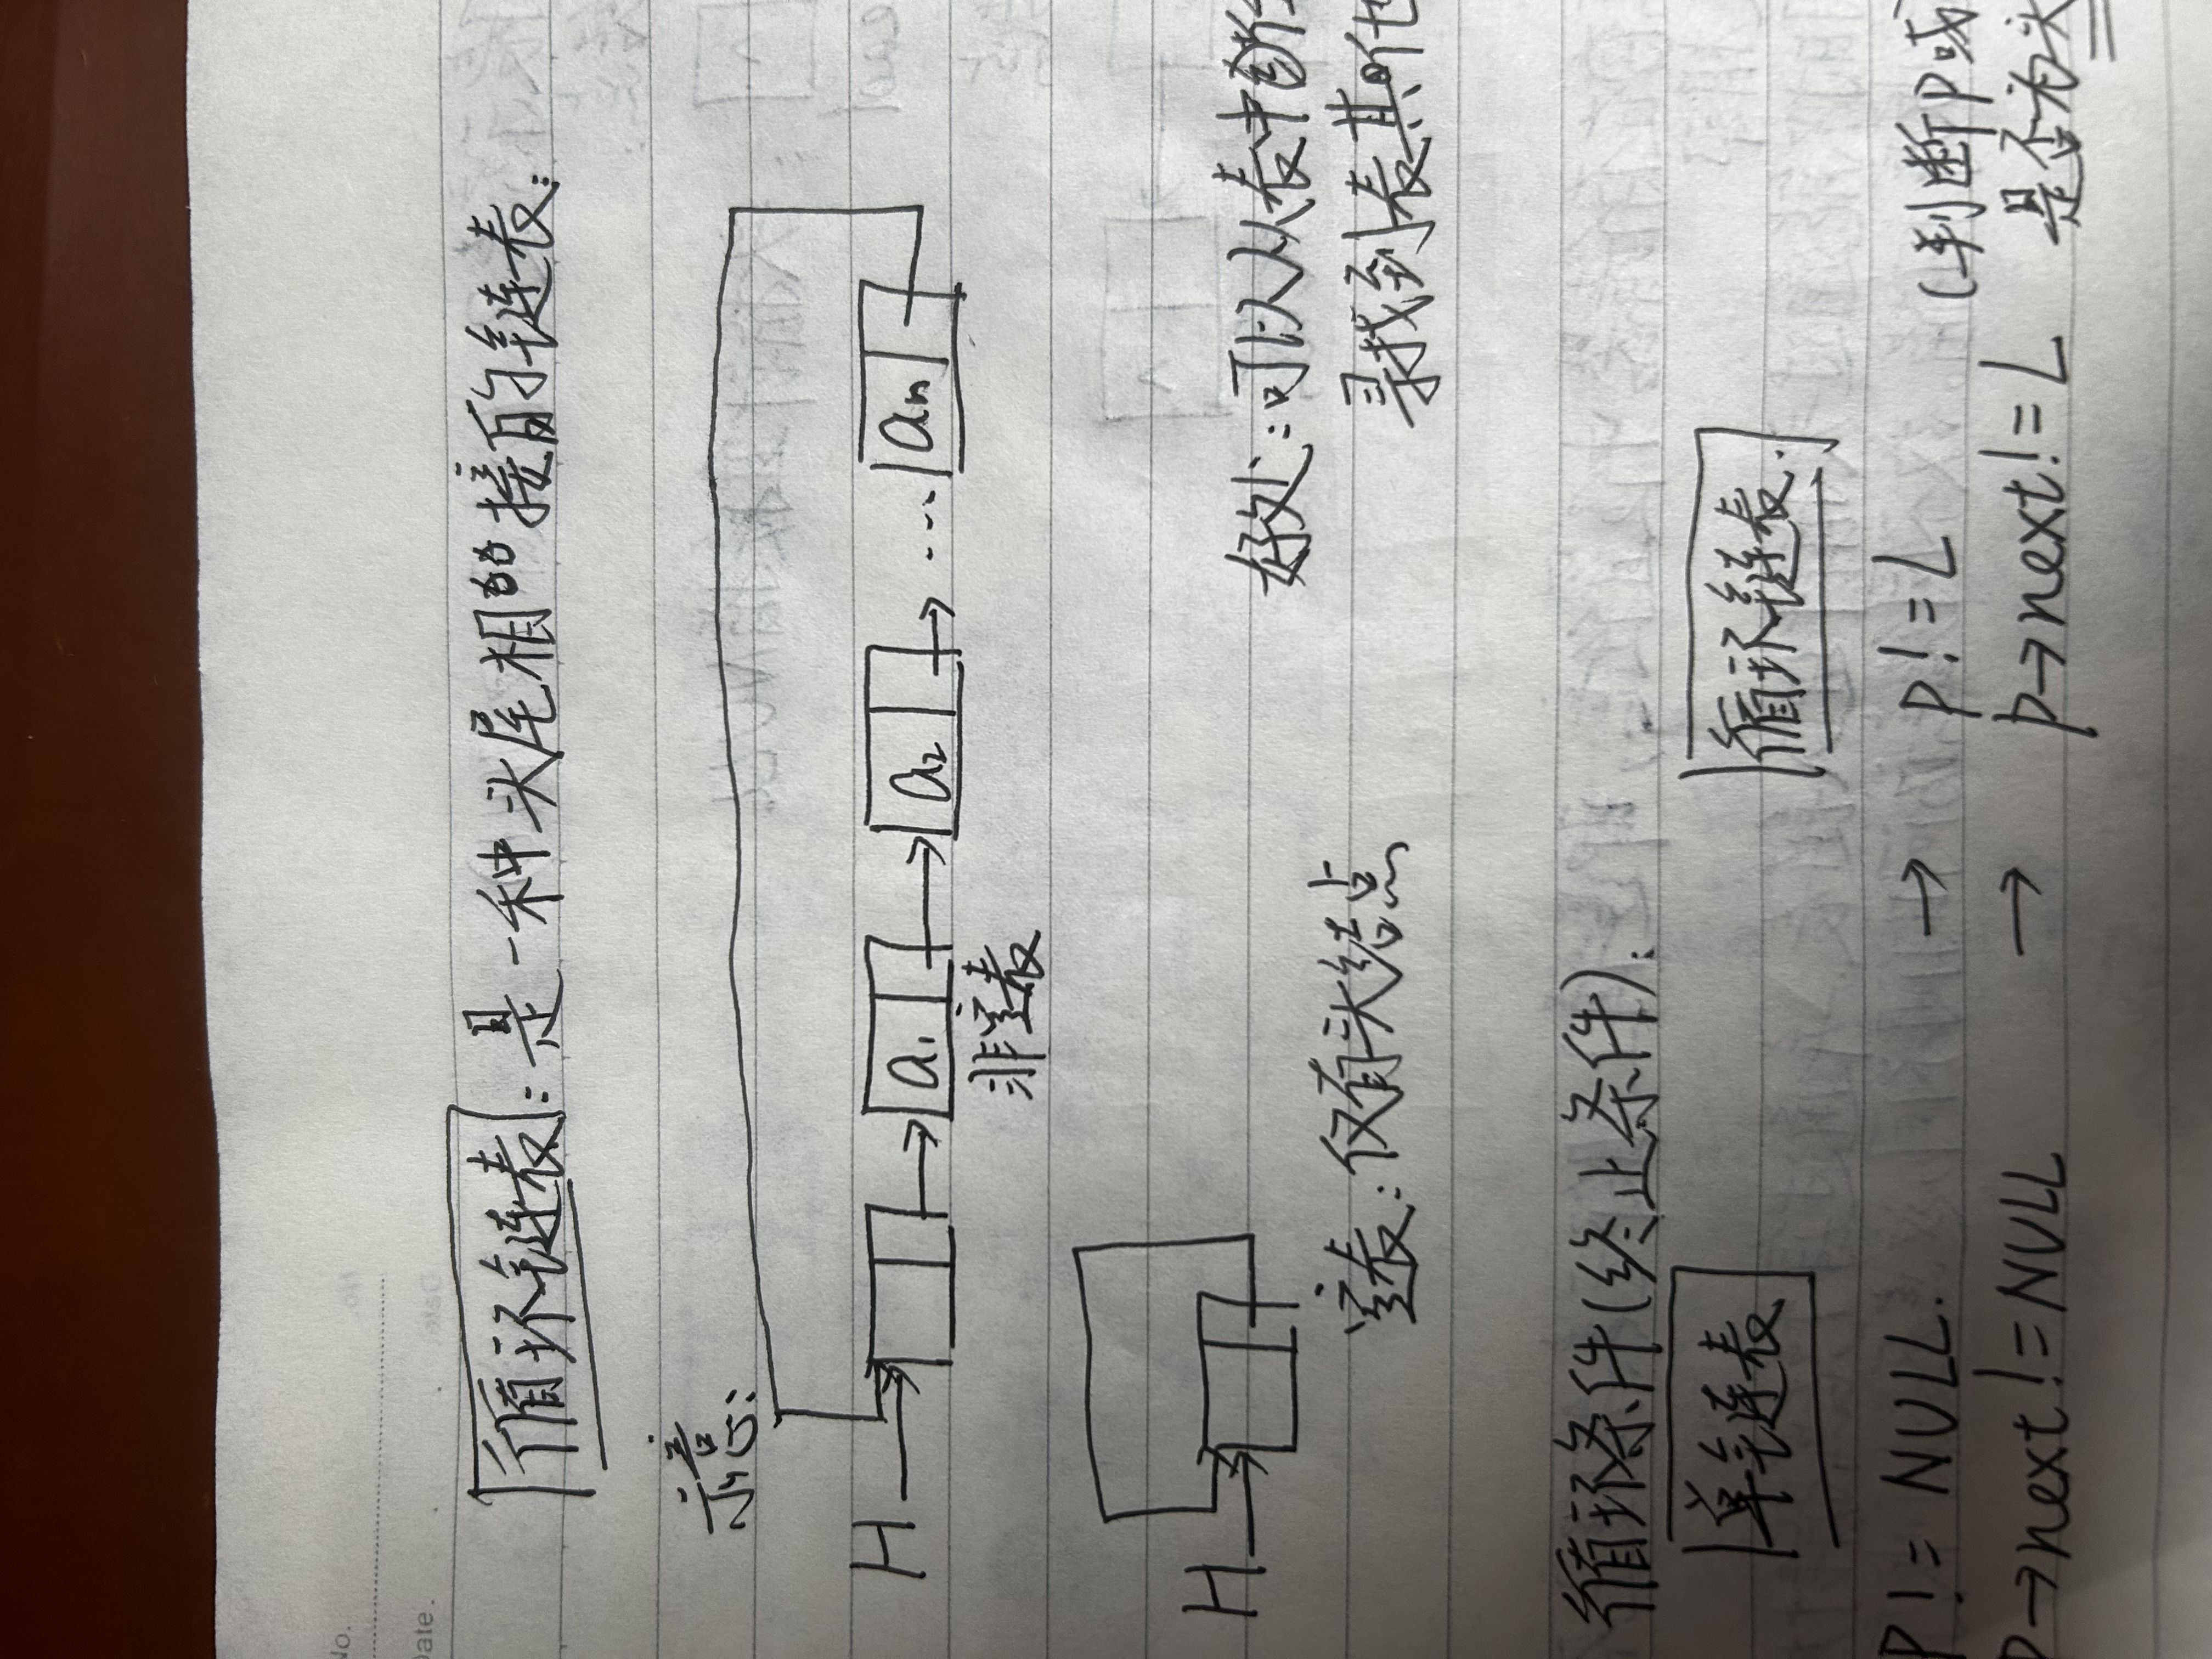 No.
Date.
循环链表:是一种头尾相接的链表:
示意:
H a₁ a₂ ... aₙ
非空表
H
好处:可以从表中
空表:仅有头结点
寻找到表其他
循环条件(终止条件):
单链表 循环链表:
P != NULL. → P != L (判断P或
P→next != NULL → P→next != L 是否为头